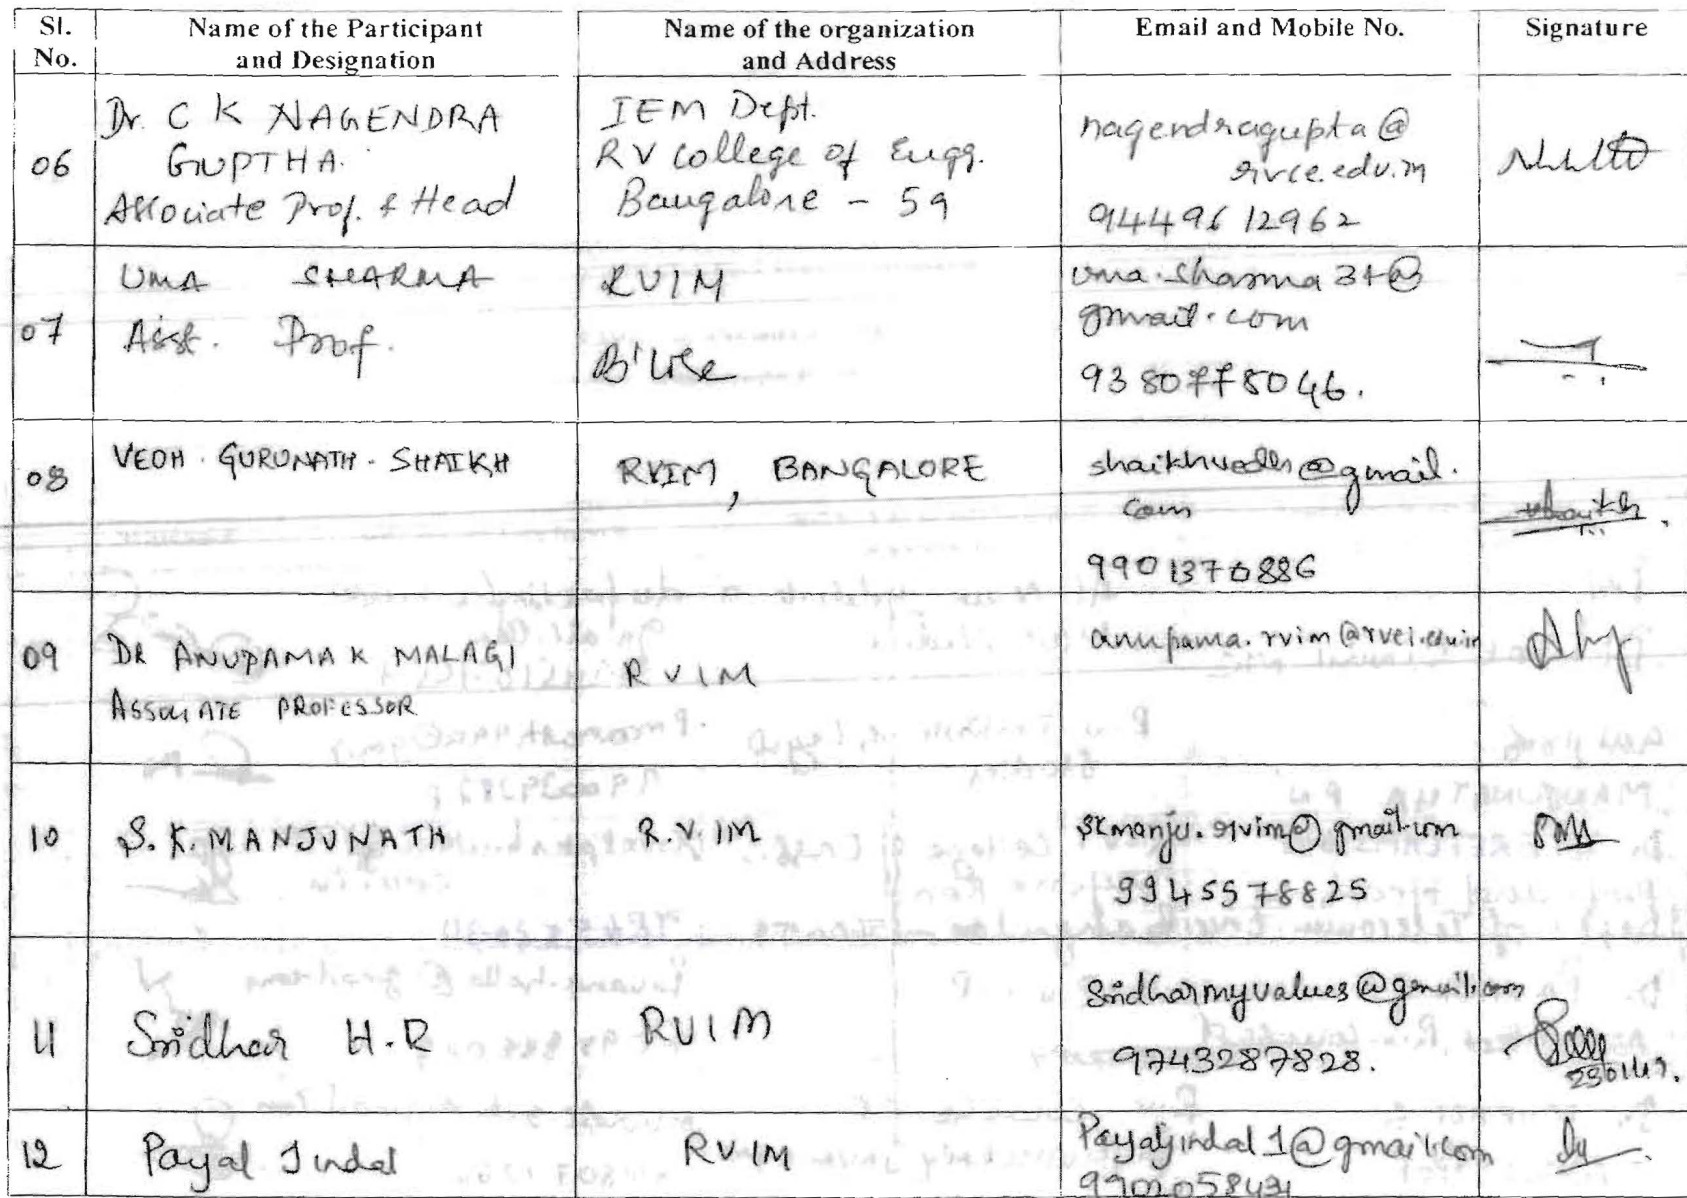 Sl. No.
Name of the Participant and Designation
Name of the organization and Address
Email and Mobile No.
Signature
06
Dr. C K NAGENDRA
GUPTHA.
Associate Prof. & Head
IEM Dept.
RV College of Engg.
Bangalore - 59
nagendragupta@
rvce.edu.in
9449612962
07
UMA SHARMA
Asst. Prof.
RVIM
B'lore
uma.sharma 34@
gmail.com
9380778046.
08
VEDH. GURUNATH. SHAIKH
RVIM, BANGALORE
shaikhvedh@gmail.
com
9901370886
09
DR ANUPAMA K MALAGI
ASSOCIATE PROFESSOR
RVIM
anupama.rvim@rvei.edu.in
10
S.K. MANJUNATH
R.V.IM
skmanju.rvim@gmail.com
9945578825
11
Sridhar H.R
RVIM
Sridharmyvalues@gmail.com
9743287828.
12
Payal Jindal
RVIM
Payaljindal1@gmail.com